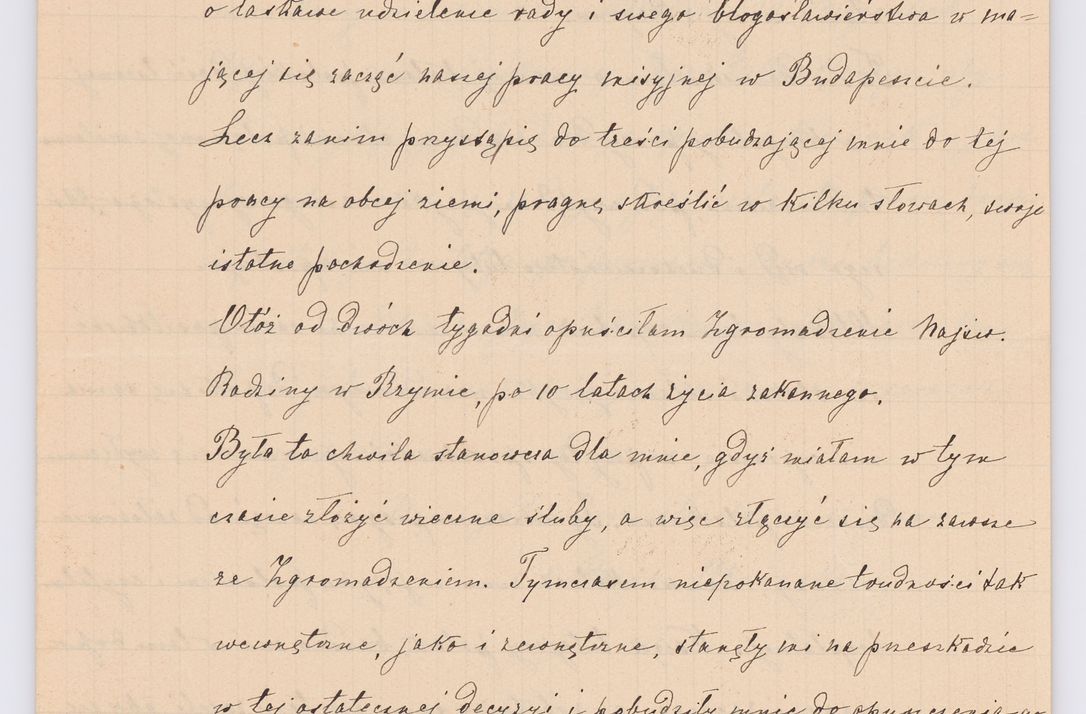 o łaskawe udzielenie rady i swego błogosławieństwa w ma=
jącej się zacząć naszej pracy misyjnej w Budapeszcie.
Lecz zanim przystąpię do treści pobudzającej mnie do tej
pracy na obcej ziemi, pragnę skreślić w kilku słowach, swoje
istotne pochodzenie.
Otóż od dwóch tygodni opuściłam Zgromadzenie Najśw.
Rodziny w Rzymie, po 10 latach życia zakonnego.
Była to chwila stanowcza dla mnie, gdyż miałam w tym
czasie złożyć wieczne śluby, a więc złączyć się na zawsze
ze Zgromadzeniem. Tymczasem niepokonane trudności tak
wewnętrzne, jako i zewnętrzne, stanęły mi na przeszkodzie
w tej ostatecznej decyzyi i pobudziły mnie do